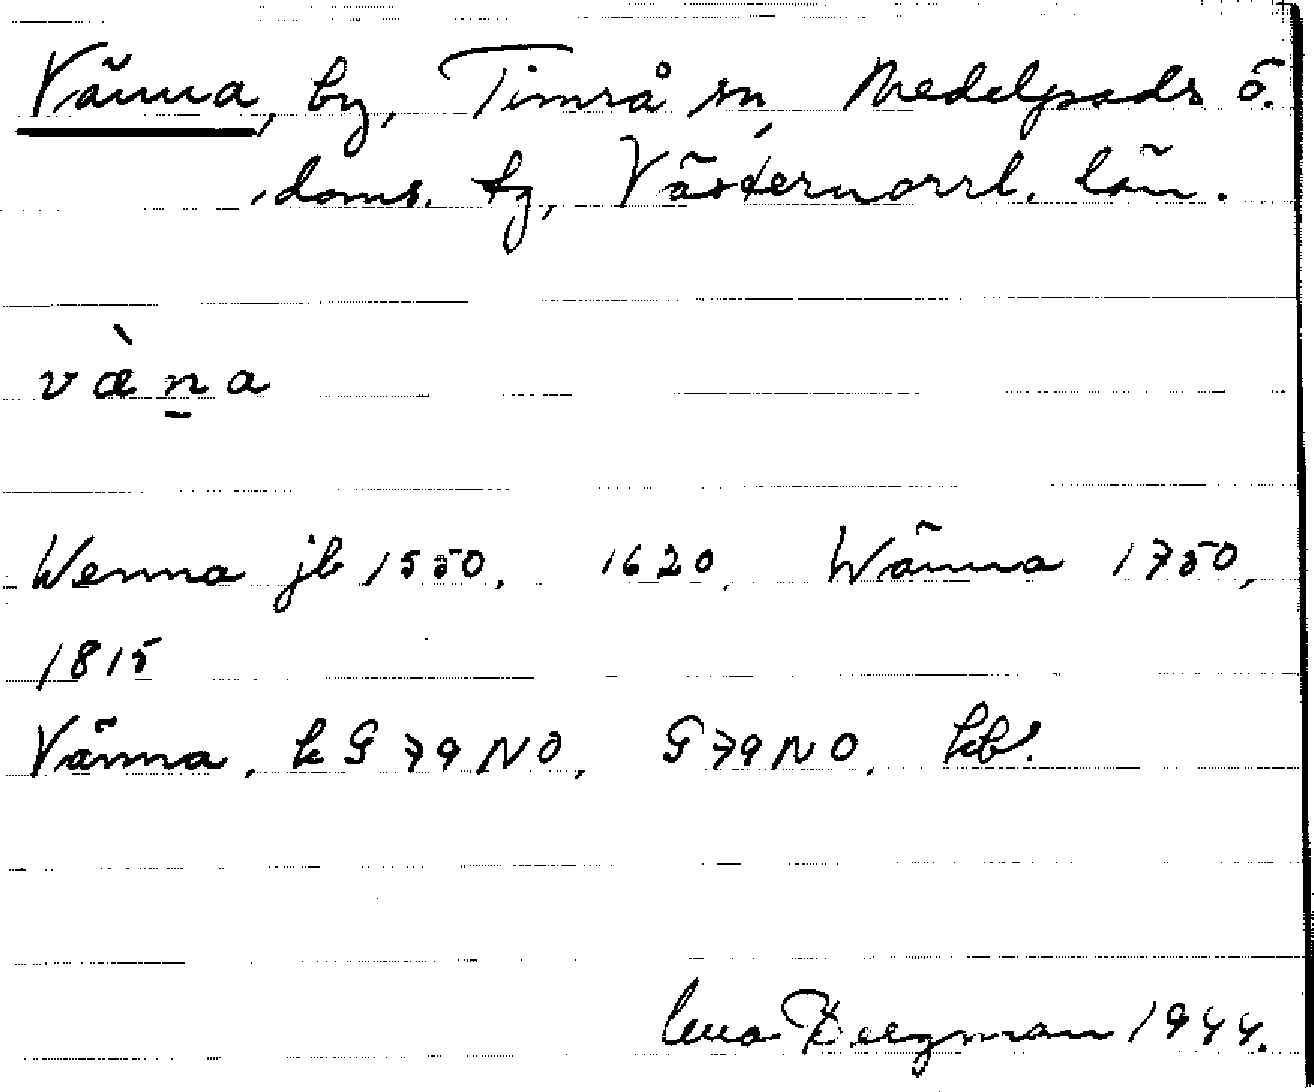 Vänna, by, Timrå sn, Medelpads ö.
doms. tg, Västernorrl. län.
væ̀n̲a
Wenna jb 1550, 1620, Wänna 1750,
1815
Vänna, k G 79 NO, G 79 NO, kb.
Bergman 1944.